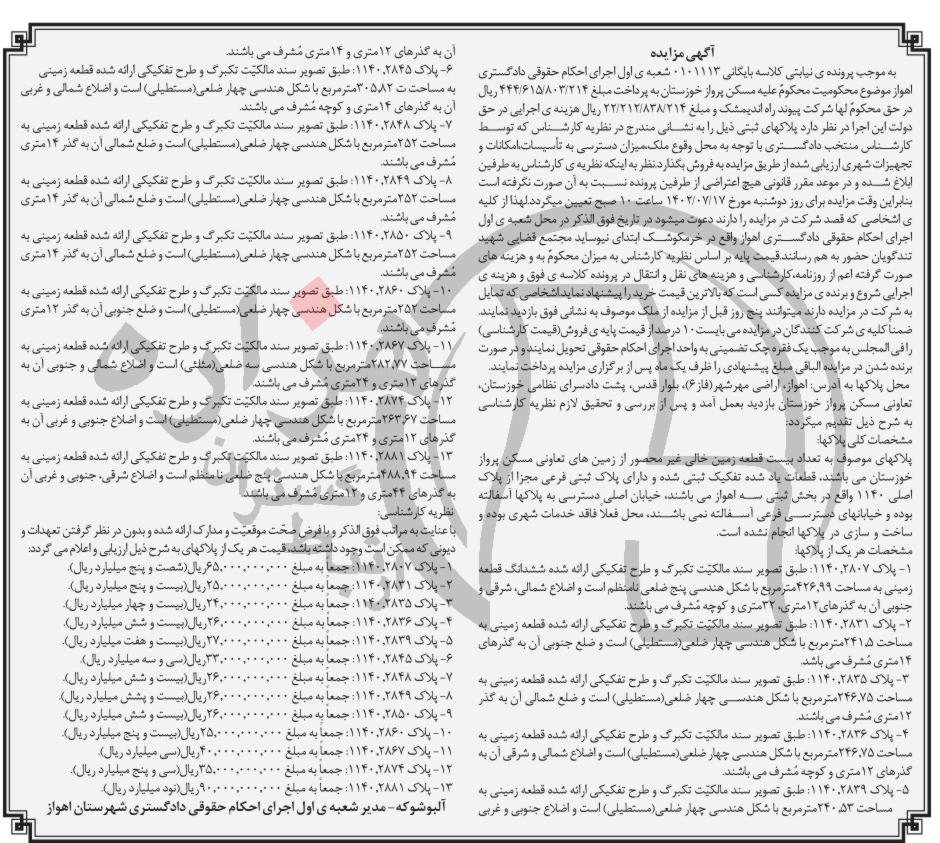 آگهی مزایده
به موجب پرونده ی نیابتی کلاسه بایگانی ۰۱۰۱۱۱۳ شعبه ی اول اجرای احکام حقوقی دادگستری
اهواز موضوع محکومیت محکومٌ علیه مسکن پرواز خوزستان به پرداخت مبلغ ۴۴۴/۶۱۵/۸۰۳/۲۱۴ ریال
در حق محکومٌ لها شرکت پیوند راه اندیمشک و مبلغ ۲۲/۲۱۲/۸۳۸/۲۱۴ ریال هزینه ی اجرایی در حق
دولت این اجرا در نظر دارد پلاکهای ثبتی ذیل را به نشانی مندرج در نظریه کارشناس که توسط
کارشناس منتخب دادگستری با توجه به محل وقوع ملک،میزان دسترسی به تأسیسات،امکانات و
تجهیزات شهری ارزیابی شده از طریق مزایده به فروش بگذارد.نظر به اینکه نظریه ی کارشناس به طرفین
ابلاغ شده و در موعد مقرر قانونی هیچ اعتراضی از طرفین پرونده نسبت به آن صورت نگرفته است
بنابراین وقت مزایده برای روز دوشنبه مورخ ۱۴۰۲/۰۷/۱۷ ساعت ۱۰ صبح تعیین میگردد.لهذا از کلیه
ی اشخاصی که قصد شرکت در مزایده را دارند دعوت میشود در تاریخ فوق الذکر در محل شعبه ی اول
اجرای احکام حقوقی دادگستری اهواز واقع در خرمکوشک ابتدای نیوساید مجتمع قضایی شهید
تندگویان حضور به هم رسانند.قیمت پایه بر اساس نظریه کارشناس به میزان محکومٌ به و هزینه های
صورت گرفته اعم از روزنامه،کارشناسی و هزینه های نقل و انتقال در پرونده کلاسه ی فوق و هزینه ی
اجرایی شروع و برنده ی مزایده کسی است که بالاترین قیمت خرید را پیشنهاد نماید.اشخاصی که تمایل
به شرکت در مزایده دارند میتوانند پنج روز قبل از مزایده از ملک موصوف به نشانی فوق بازدید نمایند.
ضمناً کلیه ی شرکت کنندگان در مزایده می بایست ۱۰ درصد از قیمت پایه ی فروش(قیمت کارشناسی)
را فی المجلس به موجب یک فقره چک تضمینی به واحد اجرای احکام حقوقی تحویل نمایند و در صورت
برنده شدن در مزایده الباقی مبلغ پیشنهادی را ظرف یک ماه پس از برگزاری مزایده پرداخت نمایند.
محل پلاکها به آدرس: اهواز، اراضی مهرشهر(فاز۶)، بلوار قدس، پشت دادسرای نظامی خوزستان،
تعاونی مسکن پرواز خوزستان بازدید بعمل آمد و پس از بررسی و تحقیق لازم نظریه کارشناسی
به شرح ذیل تقدیم میگردد:
مشخصات کلی پلاکها:
پلاکهای موصوف به تعداد بیست قطعه زمین خالی غیر محصور از زمین های تعاونی مسکن پرواز
خوزستان می باشند، قطعات یاد شده تفکیک ثبتی شده و دارای پلاک ثبتی فرعی مجزا از پلاک
اصلی ۱۱۴۰ واقع در بخش ثبتی سه اهواز می باشند، خیابان اصلی دسترسی به پلاکها آسفالته
بوده و خیابانهای دسترسی فرعی آسفالته نمی باشند، محل فعلا فاقد خدمات شهری بوده و
ساخت و سازی در پلاکها انجام نشده است.
مشخصات هر یک از پلاکها:
۱- پلاک ۱۱۴۰,۲۸۰۷: طبق تصویر سند مالکیّت تکبرگ و طرح تفکیکی ارائه شده ششدانگ قطعه
زمینی به مساحت ۴۲۶,۹۹مترمربع با شکل هندسی پنج ضلعی نامنظم است و اضلاع شمالی، شرقی و
جنوبی آن به گذرهای۱۲متری، ۳۲متری و کوچه مُشرف می باشند.
۲- پلاک ۱۱۴۰,۲۸۳۱: طبق تصویر سند مالکیّت تکبرگ و طرح تفکیکی ارائه شده قطعه زمینی به
مساحت ۲۴۱,۵مترمربع با شکل هندسی چهار ضلعی(مستطیلی) است و ضلع جنوبی آن به گذرهای
۱۴متری مُشرف می باشد.
۳- پلاک ۱۱۴۰,۲۸۳۵: طبق تصویر سند مالکیّت تکبرگ و طرح تفکیکی ارائه شده قطعه زمینی به
مساحت ۲۴۶,۷۵مترمربع با شکل هندسی چهار ضلعی(مستطیلی) است و ضلع شمالی آن به گذر
۱۲متری مُشرف می باشند.
۴- پلاک ۱۱۴۰,۲۸۳۶: طبق تصویر سند مالکیّت تکبرگ و طرح تفکیکی ارائه شده قطعه زمینی به
مساحت ۲۴۶,۷۵مترمربع با شکل هندسی چهار ضلعی(مستطیلی) است و اضلاع شمالی و شرقی آن به
گذرهای ۱۲متری و کوچه مُشرف می باشند.
۵- پلاک ۱۱۴۰,۲۸۳۹: طبق تصویر سند مالکیّت تکبرگ و طرح تفکیکی ارائه شده قطعه زمینی به
مساحت ۲۴۰,۵۳مترمربع با شکل هندسی چهار ضلعی(مستطیلی) است و اضلاع جنوبی و غربی
آن به گذرهای ۱۲متری و ۱۴متری مُشرف می باشند.
۶- پلاک ۱۱۴۰,۲۸۴۵: طبق تصویر سند مالکیّت تکبرگ و طرح تفکیکی ارائه شده قطعه زمینی
به مساحت ت ۳۰۵,۸۲مترمربع با شکل هندسی چهار ضلعی(مستطیلی) است و اضلاع شمالی و غربی
آن به گذرهای ۱۴متری و کوچه مُشرف می باشند.
۷- پلاک ۱۱۴۰,۲۸۴۸: طبق تصویر سند مالکیّت تکبرگ و طرح تفکیکی ارائه شده قطعه زمینی به
مساحت ۲۵۲مترمربع با شکل هندسی چهار ضلعی(مستطیلی) است و ضلع شمالی آن به گذر ۱۴متری
مُشرف می باشند.
۸- پلاک ۱۱۴۰,۲۸۴۹: طبق تصویر سند مالکیّت تکبرگ و طرح تفکیکی ارائه شده قطعه زمینی به
مساحت ۲۵۲مترمربع با شکل هندسی چهار ضلعی(مستطیلی) است و ضلع شمالی آن به گذر ۱۴متری
مُشرف می باشند.
۹- پلاک ۱۱۴۰,۲۸۵۰: طبق تصویر سند مالکیّت تکبرگ و طرح تفکیکی ارائه شده قطعه زمینی به
مساحت ۲۵۲مترمربع با شکل هندسی چهار ضلعی(مستطیلی) است و ضلع شمالی آن به گذر ۱۴متری
مُشرف می باشند.
۱۰- پلاک ۱۱۴۰,۲۸۶۰: طبق تصویر سند مالکیّت تکبرگ و طرح تفکیکی ارائه شده قطعه زمینی به
مساحت ۲۵۲مترمربع با شکل هندسی چهار ضلعی(مستطیلی) است و ضلع جنوبی آن به گذر ۱۲متری
مُشرف می باشند.
۱۱- پلاک ۱۱۴۰,۲۸۶۷: طبق تصویر سند مالکیّت تکبرگ و طرح تفکیکی ارائه شده قطعه زمینی به
مساحت ۲۸۲,۷۷مترمربع با شکل هندسی سه ضلعی(مثلثی) است و اضلاع شمالی و جنوبی آن به
گذرهای ۱۲متری و ۲۴متری مُشرف می باشند.
۱۲- پلاک ۱۱۴۰,۲۸۷۴: طبق تصویر سند مالکیّت تکبرگ و طرح تفکیکی ارائه شده قطعه زمینی به
مساحت ۲۶۳,۶۷مترمربع با شکل هندسی چهار ضلعی(مستطیلی) است و اضلاع جنوبی و غربی آن به
گذرهای ۱۲متری و ۲۴متری مُشرف می باشند.
۱۳- پلاک ۱۱۴۰,۲۸۸۱: طبق تصویر سند مالکیّت تکبرگ و طرح تفکیکی ارائه شده قطعه زمینی به
مساحت ۴۸۸,۹۴مترمربع با شکل هندسی پنج ضلعی نا منظم است و اضلاع شرقی، جنوبی و غربی آن
به گذرهای ۴۴متری و ۱۲متری مُشرف می باشند.
نظریه کارشناسی:
با عنایت به مراتب فوق الذکر و با فرض صحّت موقعیّت و مدارک ارائه شده و بدون در نظر گرفتن تعهدات و
دیونی که ممکن است وجود داشته باشد، قیمت هر یک از پلاکهای به شرح ذیل ارزیابی و اعلام می گردد:
۱- پلاک ۱۱۴۰,۲۸۰۷: جمعاً به مبلغ ۶۵,۰۰۰,۰۰۰,۰۰۰ریال(شصت و پنج میلیارد ریال).
۲- پلاک ۱۱۴۰,۲۸۳۱: جمعاً به مبلغ ۲۵,۰۰۰,۰۰۰,۰۰۰ریال(بیست و پنج میلیارد ریال).
۳- پلاک ۱۱۴۰,۲۸۳۵: جمعاً به مبلغ ۲۴,۰۰۰,۰۰۰,۰۰۰ریال(بیست و چهار میلیارد ریال).
۴- پلاک ۱۱۴۰,۲۸۳۶: جمعاً به مبلغ ۲۶,۰۰۰,۰۰۰,۰۰۰ریال(بیست و شش میلیارد ریال).
۵- پلاک ۱۱۴۰,۲۸۳۹: جمعاً به مبلغ ۲۷,۰۰۰,۰۰۰,۰۰۰ریال(بیست و هفت میلیارد ریال).
۶- پلاک ۱۱۴۰,۲۸۴۵: جمعاً به مبلغ ۳۳,۰۰۰,۰۰۰,۰۰۰ریال(سی و سه میلیارد ریال).
۷- پلاک ۱۱۴۰,۲۸۴۸: جمعاً به مبلغ ۲۶,۰۰۰,۰۰۰,۰۰۰ریال(بیست و شش میلیارد ریال).
۸- پلاک ۱۱۴۰,۲۸۴۹: جمعاً به مبلغ ۲۶,۰۰۰,۰۰۰,۰۰۰ریال(بیست و پشش میلیارد ریال).
۹- پلاک ۱۱۴۰,۲۸۵۰: جمعاً به مبلغ ۲۶,۰۰۰,۰۰۰,۰۰۰ریال(بیست و شش میلیارد ریال).
۱۰- پلاک ۱۱۴۰,۲۸۶۰: جمعاً به مبلغ ۲۵,۰۰۰,۰۰۰,۰۰۰ریال(بیست و پنج میلیارد ریال).
۱۱- پلاک ۱۱۴۰,۲۸۶۷: جمعاً به مبلغ ۴۰,۰۰۰,۰۰۰,۰۰۰ریال(سی میلیارد ریال).
۱۲- پلاک ۱۱۴۰,۲۸۷۴: جمعاً به مبلغ ۳۵,۰۰۰,۰۰۰,۰۰۰ریال(سی و پنج میلیارد ریال).
۱۳- پلاک ۱۱۴۰,۲۸۸۱: جمعاً به مبلغ ۹۰,۰۰۰,۰۰۰,۰۰۰ریال(نود میلیارد ریال).
آلبوشوکه - مدیر شعبه ی اول اجرای احکام حقوقی دادگستری شهرستان اهواز